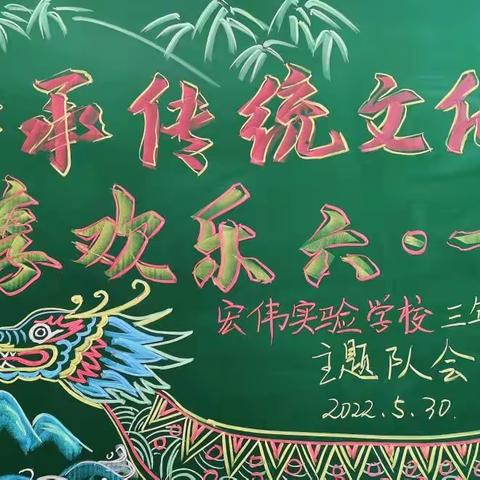 承传统文化
欢乐六·一
宏伟实验学校三年
主题队会
2022.5.30.